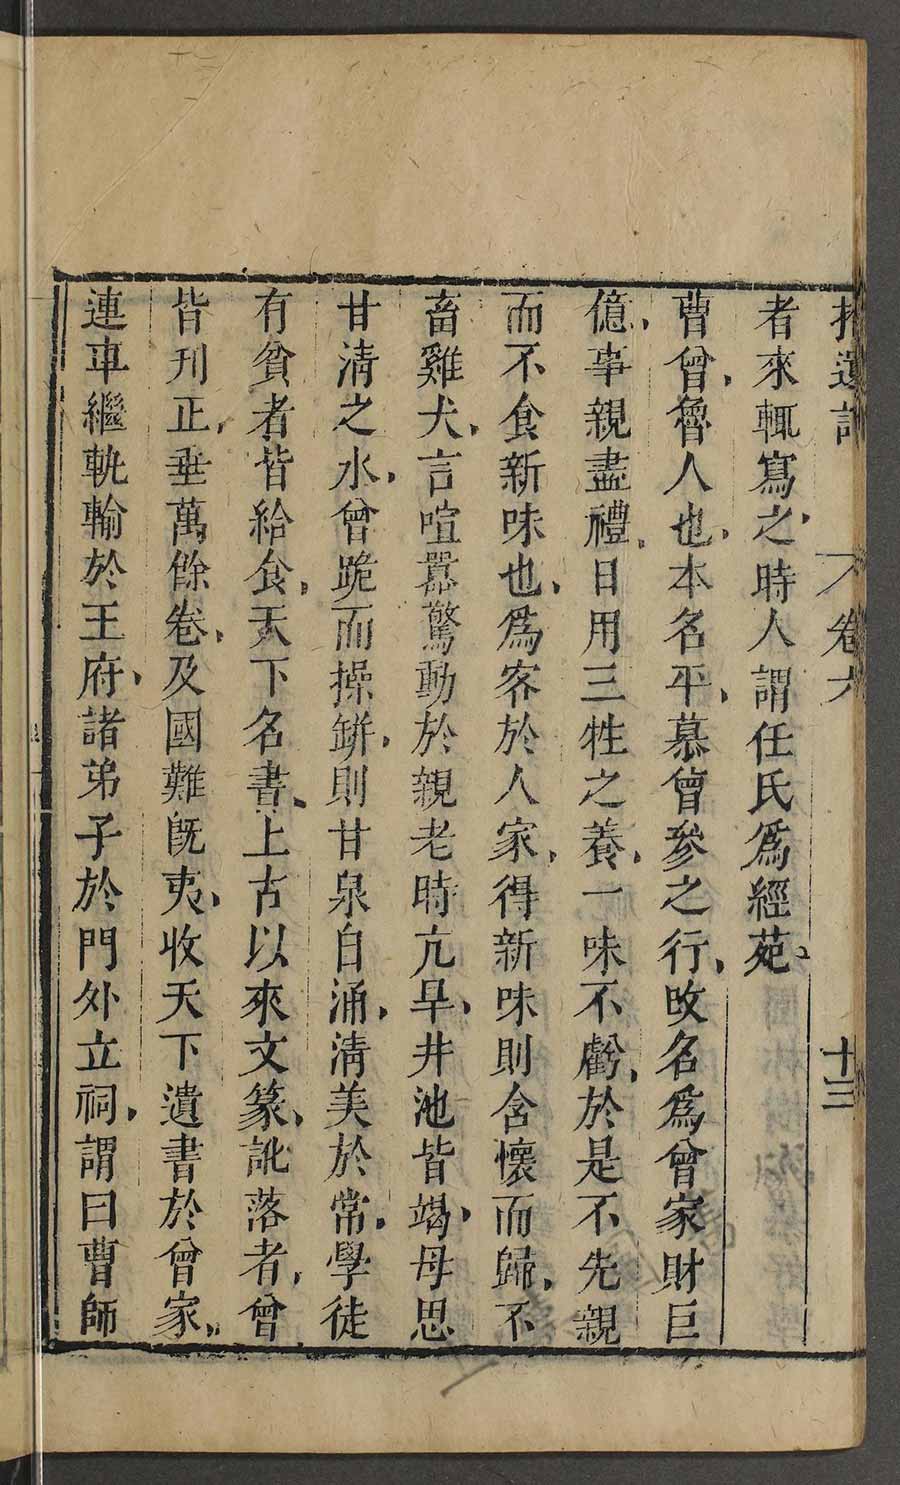 拾遺記 卷六 十三
者來輒寫之時人謂任氏爲經苑
曹曾魯人也本名平慕曾參之行改名爲曾家財巨
億事親盡禮日用三牲之養一味不虧於是不先親
而不食新味也爲客於人家得新味則含懷而歸不
畜雞犬言喧囂驚動於親老時亢旱井池皆竭母思
甘清之水曾跪而操缾則甘泉自涌清美於常學徒
有貧者皆給食天下名書上古以來文篆訛落者曾
皆刊正垂萬餘卷及國難旣夷收天下遺書於曾家
連車繼軌輸於王府諸弟子於門外立祠謂曰曹師